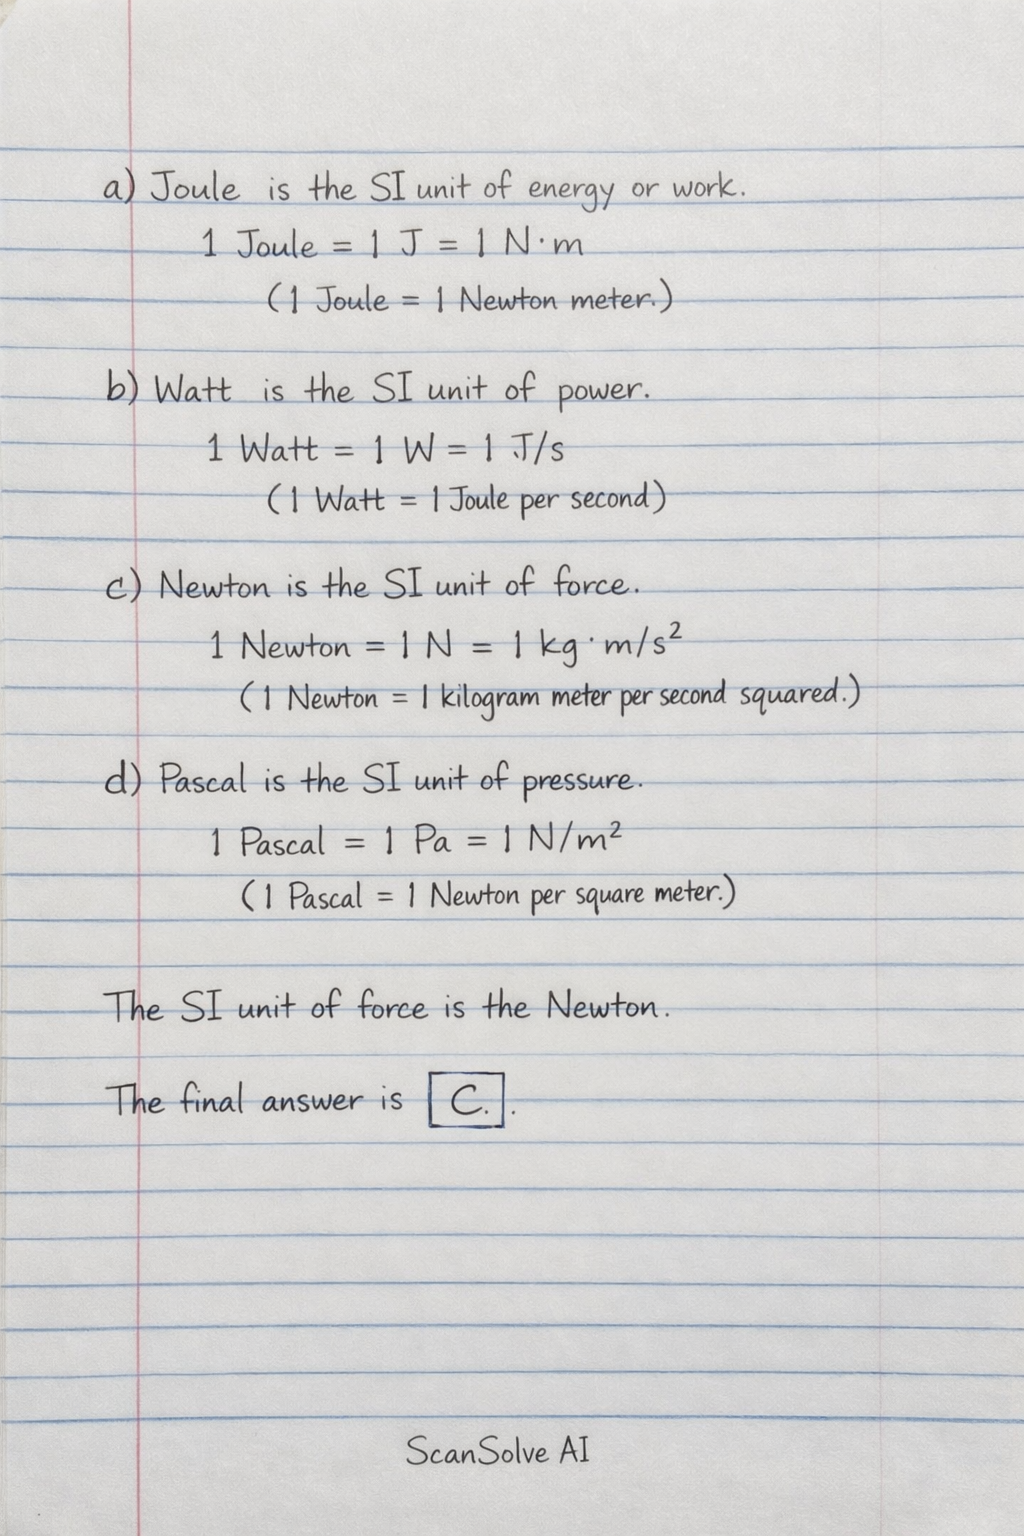 a) Joule is the SI unit of energy or work.
1 Joule = 1 J = 1 N·m
(1 Joule = 1 Newton meter.)
b) Watt is the SI unit of power.
1 Watt = 1 W = 1 J/s
(1 Watt = 1 Joule per second)
c) Newton is the SI unit of force.
1 Newton = 1 N = 1 kg·m/s²
(1 Newton = 1 kilogram meter per second squared.)
d) Pascal is the SI unit of pressure.
1 Pascal = 1 Pa = 1 N/m²
(1 Pascal = 1 Newton per square meter.)
The SI unit of force is the Newton.
The final answer is C..
ScanSolve AI